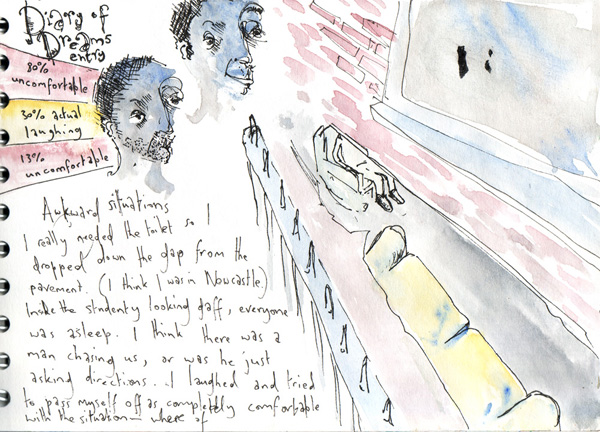 Diary of
Dreams
entry
80%
uncomfortable
30% actual
laughing
13%
uncomfortable
Awkward situations
I really needed the toilet so I
dropped down the gap from the
pavement. (I think I was in Newcastle)
Inside the studenty looking gaff, everyone
was asleep. I think there was a
man chasing us, or was he just
asking directions... I laughed and tried
to pass myself off as completely comfortable
with the situation — where of